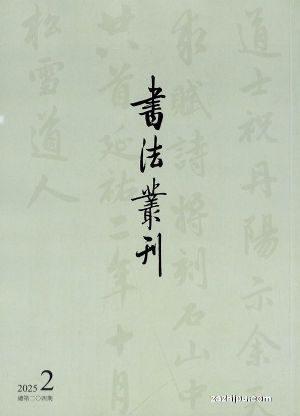 書法叢刊
道士祝丹陽示余
求賦詩將刻石山中
廿首延祐二年十月
松雪道人
2025 2
總第二〇四期
zazhipu.com